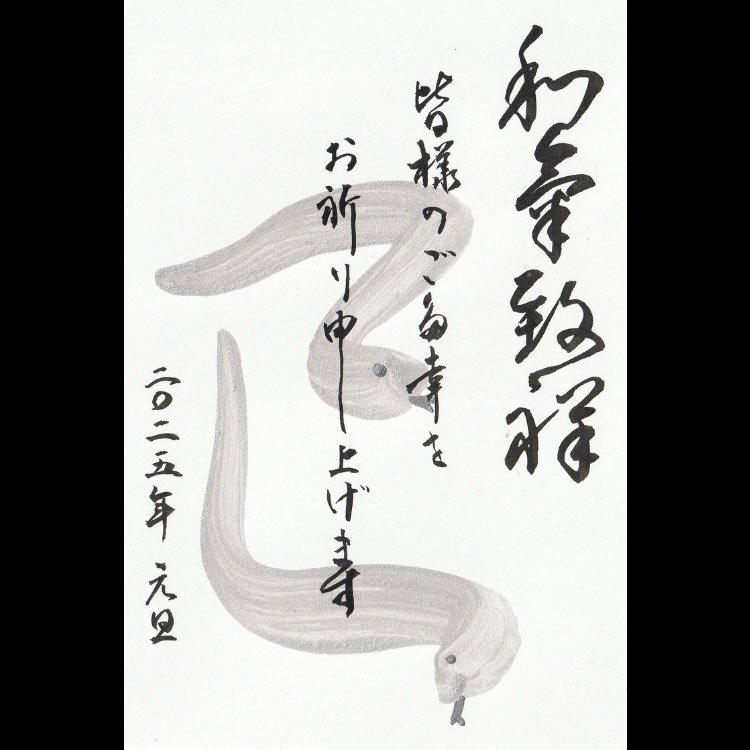 和氣致祥
皆様のご多幸を
お祈り申し上げます
二〇二五年 元旦